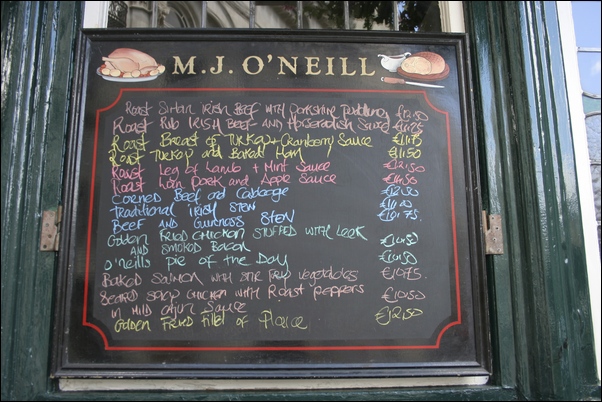 M.J. O'NEILL
Roast Sirloin Irish Beef with Yorkshire Pudding €12.50
Roast Rib IRISH Beef AND Horseradish Sauce €11.75
Roast Breast of Turkey + Cranberry Sauce €11.75
Roast Turkey and Baked Ham €11.50
Roast Leg of Lamb + Mint Sauce €12.50
Roast Loin Pork and Apple Sauce €11.50
Corned Beef and Cabbage €12.50
Traditional Irish Stew
BEEF and GUINNESS STEW €10.75
Golden Fried Chicken STUFFED WITH LEEK
AND SMOKED BACON €10.50
O'Neills PIE OF THE DAY €10.50
Baked Salmon with STIR Fry vegetables €10.75
Seared Spicy Chicken with Roast Peppers
in MILD Cajun Sauce €10.50
Golden Fried Fillet of Plaice €12.50